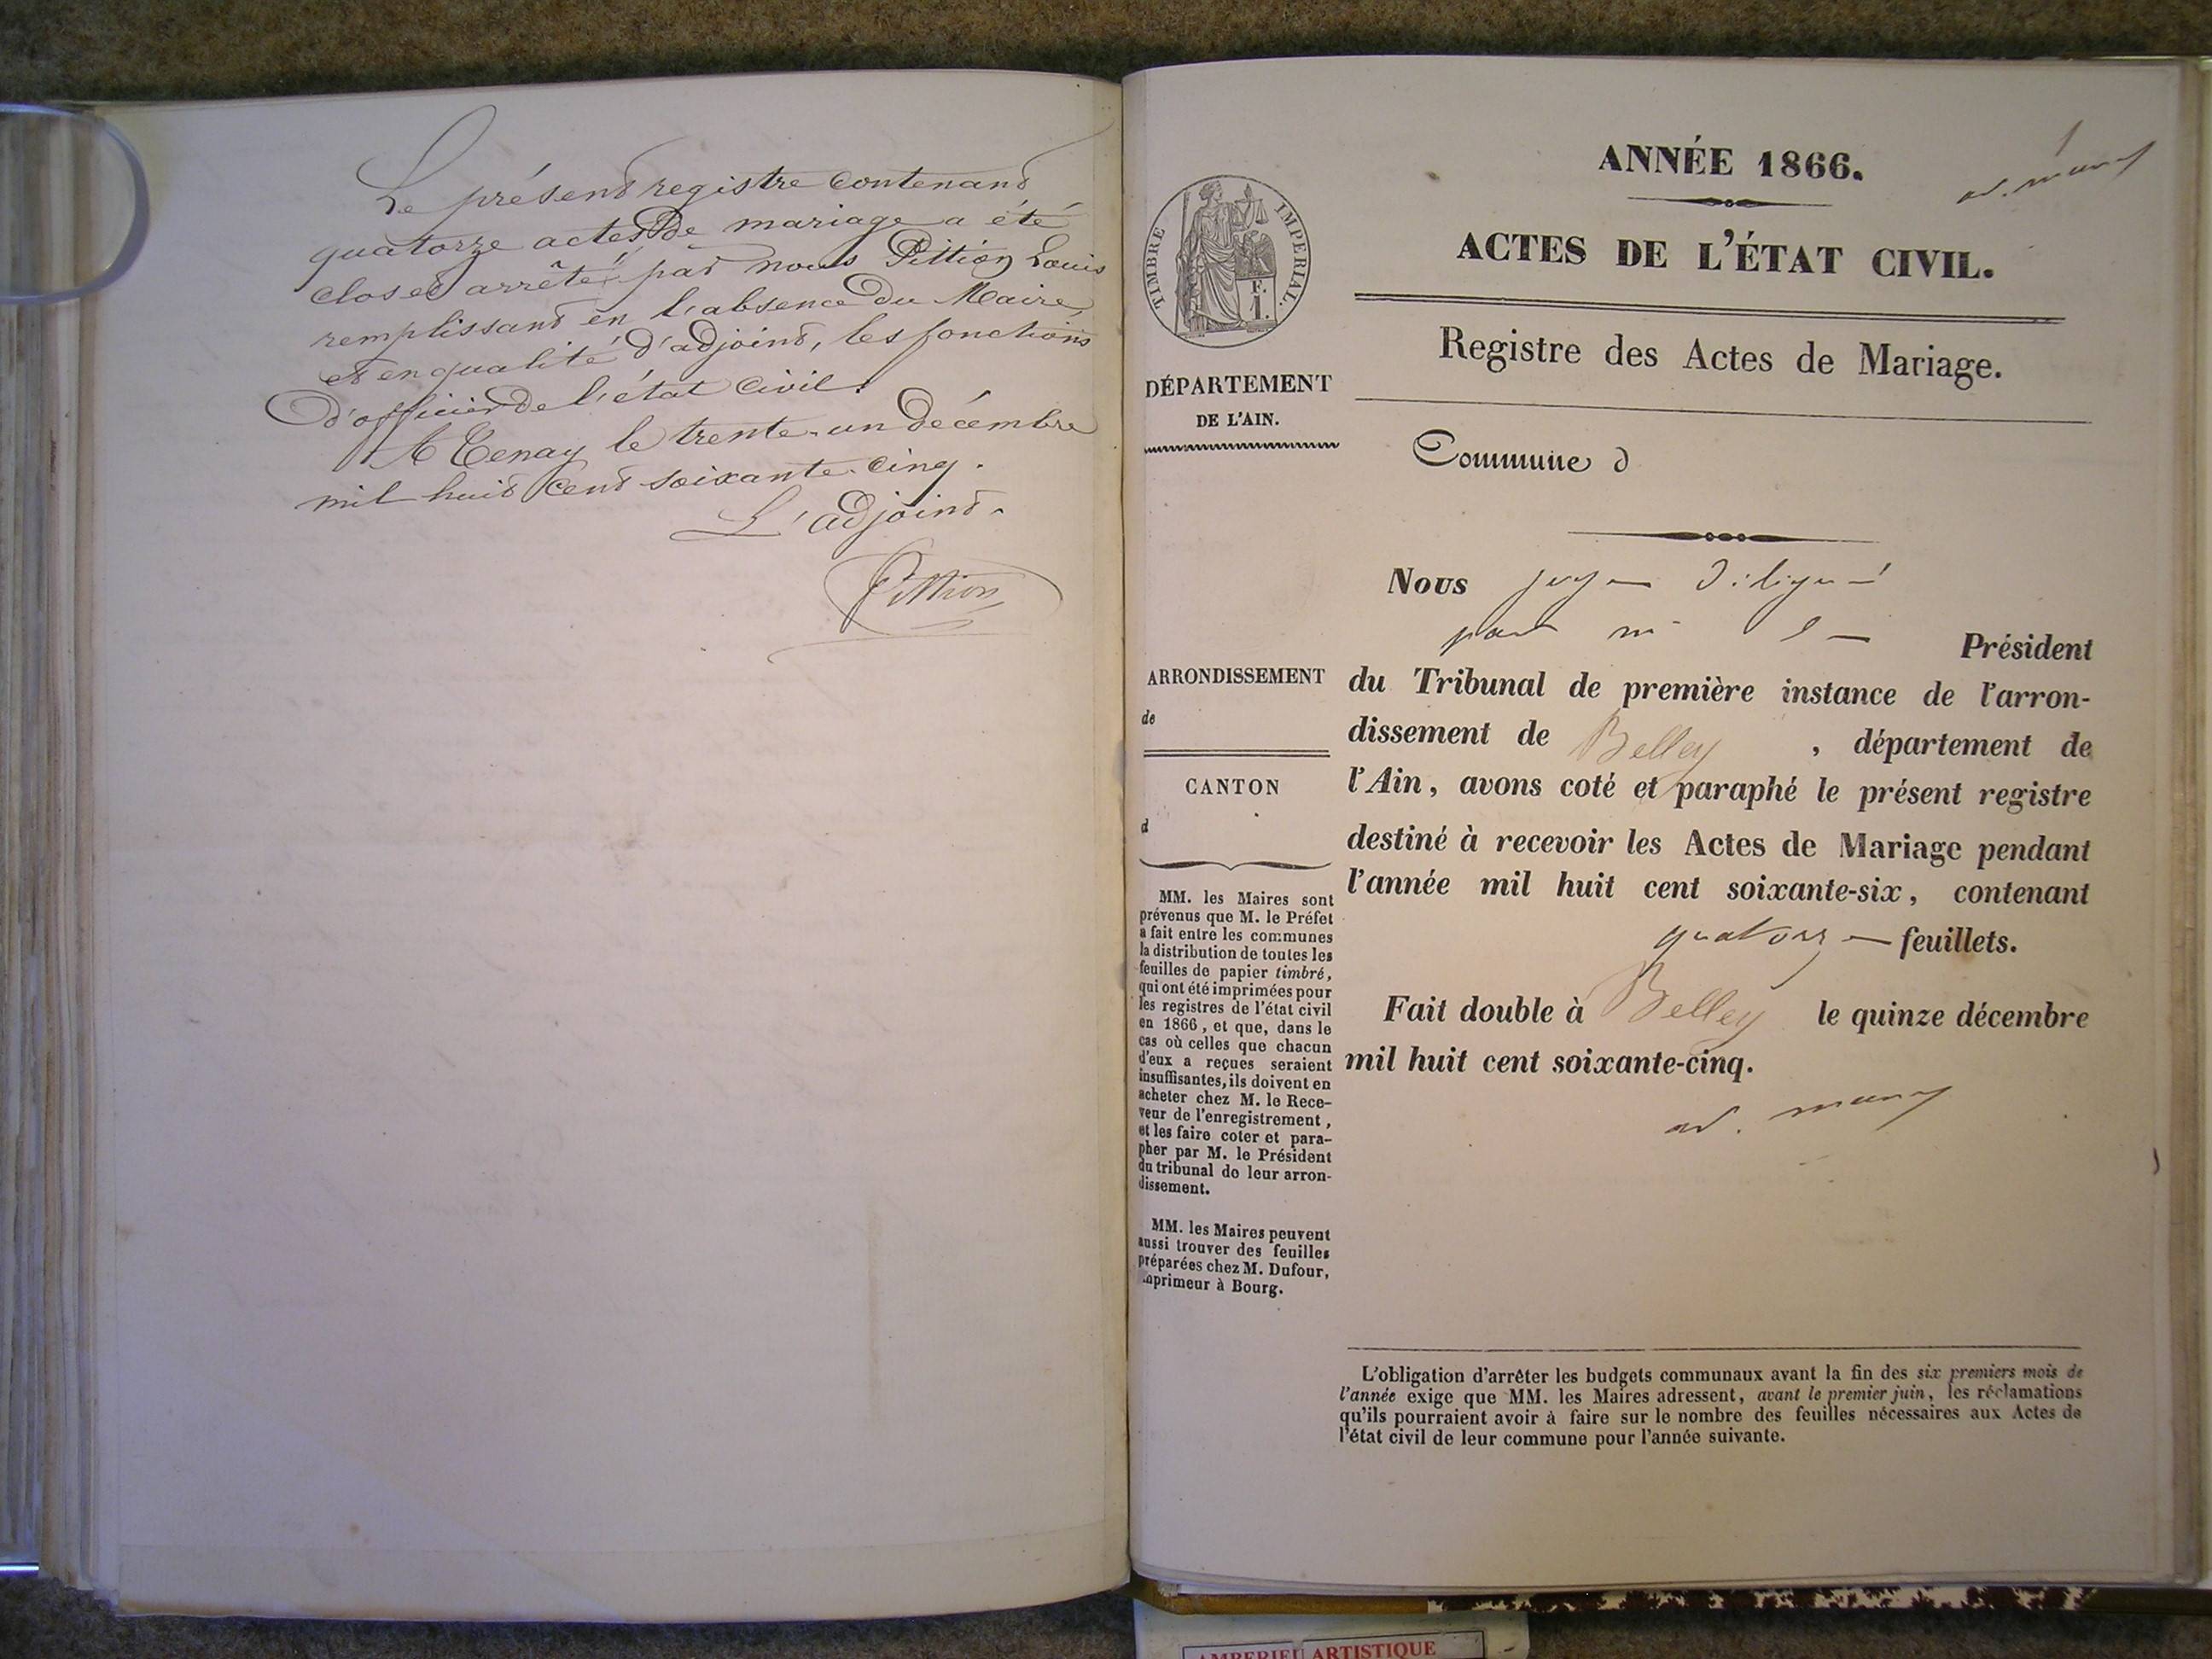 Le présent registre contenant
quatorze actes de mariage a été
clos et arrêté par nous Pittion Louis
remplissant en l'absence du Maire,
et en qualité d'adjoint, les fonctions
d'officier de l'état civil.
A Tenay le trente-un décembre
mil huit cent soixante-cinq.
L'adjoint.
Pittion
ANNÉE 1866.
1
ACTES DE L'ÉTAT CIVIL.
Registre des Actes de Mariage.
TIMBRE IMPERIAL.
F.
1.
DÉPARTEMENT
DE L'AIN.
Commune d
Nous juge délégué
par
Président
du Tribunal de première instance de l'arron-
dissement de Belley , département de
l'Ain, avons coté et paraphé le présent registre
destiné à recevoir les Actes de Mariage pendant
l'année mil huit cent soixante-six, contenant
quatorze feuillets.
Fait double à Belley le quinze décembre
mil huit cent soixante-cinq.
ARRONDISSEMENT
de
CANTON
d
MM. les Maires sont
prévenus que M. le Préfet
a fait entre les communes
la distribution de toutes les
feuilles de papier timbré,
qui ont été imprimées pour
les registres de l'état civil
en 1866, et que, dans le
cas où celles que chacun
d'eux a reçues seraient
insuffisantes, ils doivent en
acheter chez M. le Rece-
veur de l'enregistrement,
et les faire coter et para-
pher par M. le Président
du tribunal de leur arron-
dissement.
MM. les Maires peuvent
aussi trouver des feuilles
préparées chez M. Dufour,
imprimeur à Bourg.
L'obligation d'arrêter les budgets communaux avant la fin des six premiers mois de
l'année exige que MM. les Maires adressent, avant le premier juin, les réclamations
qu'ils pourraient avoir à faire sur le nombre des feuilles nécessaires aux Actes de
l'état civil de leur commune pour l'année suivante.
AMBERIEU ARTISTIQUE